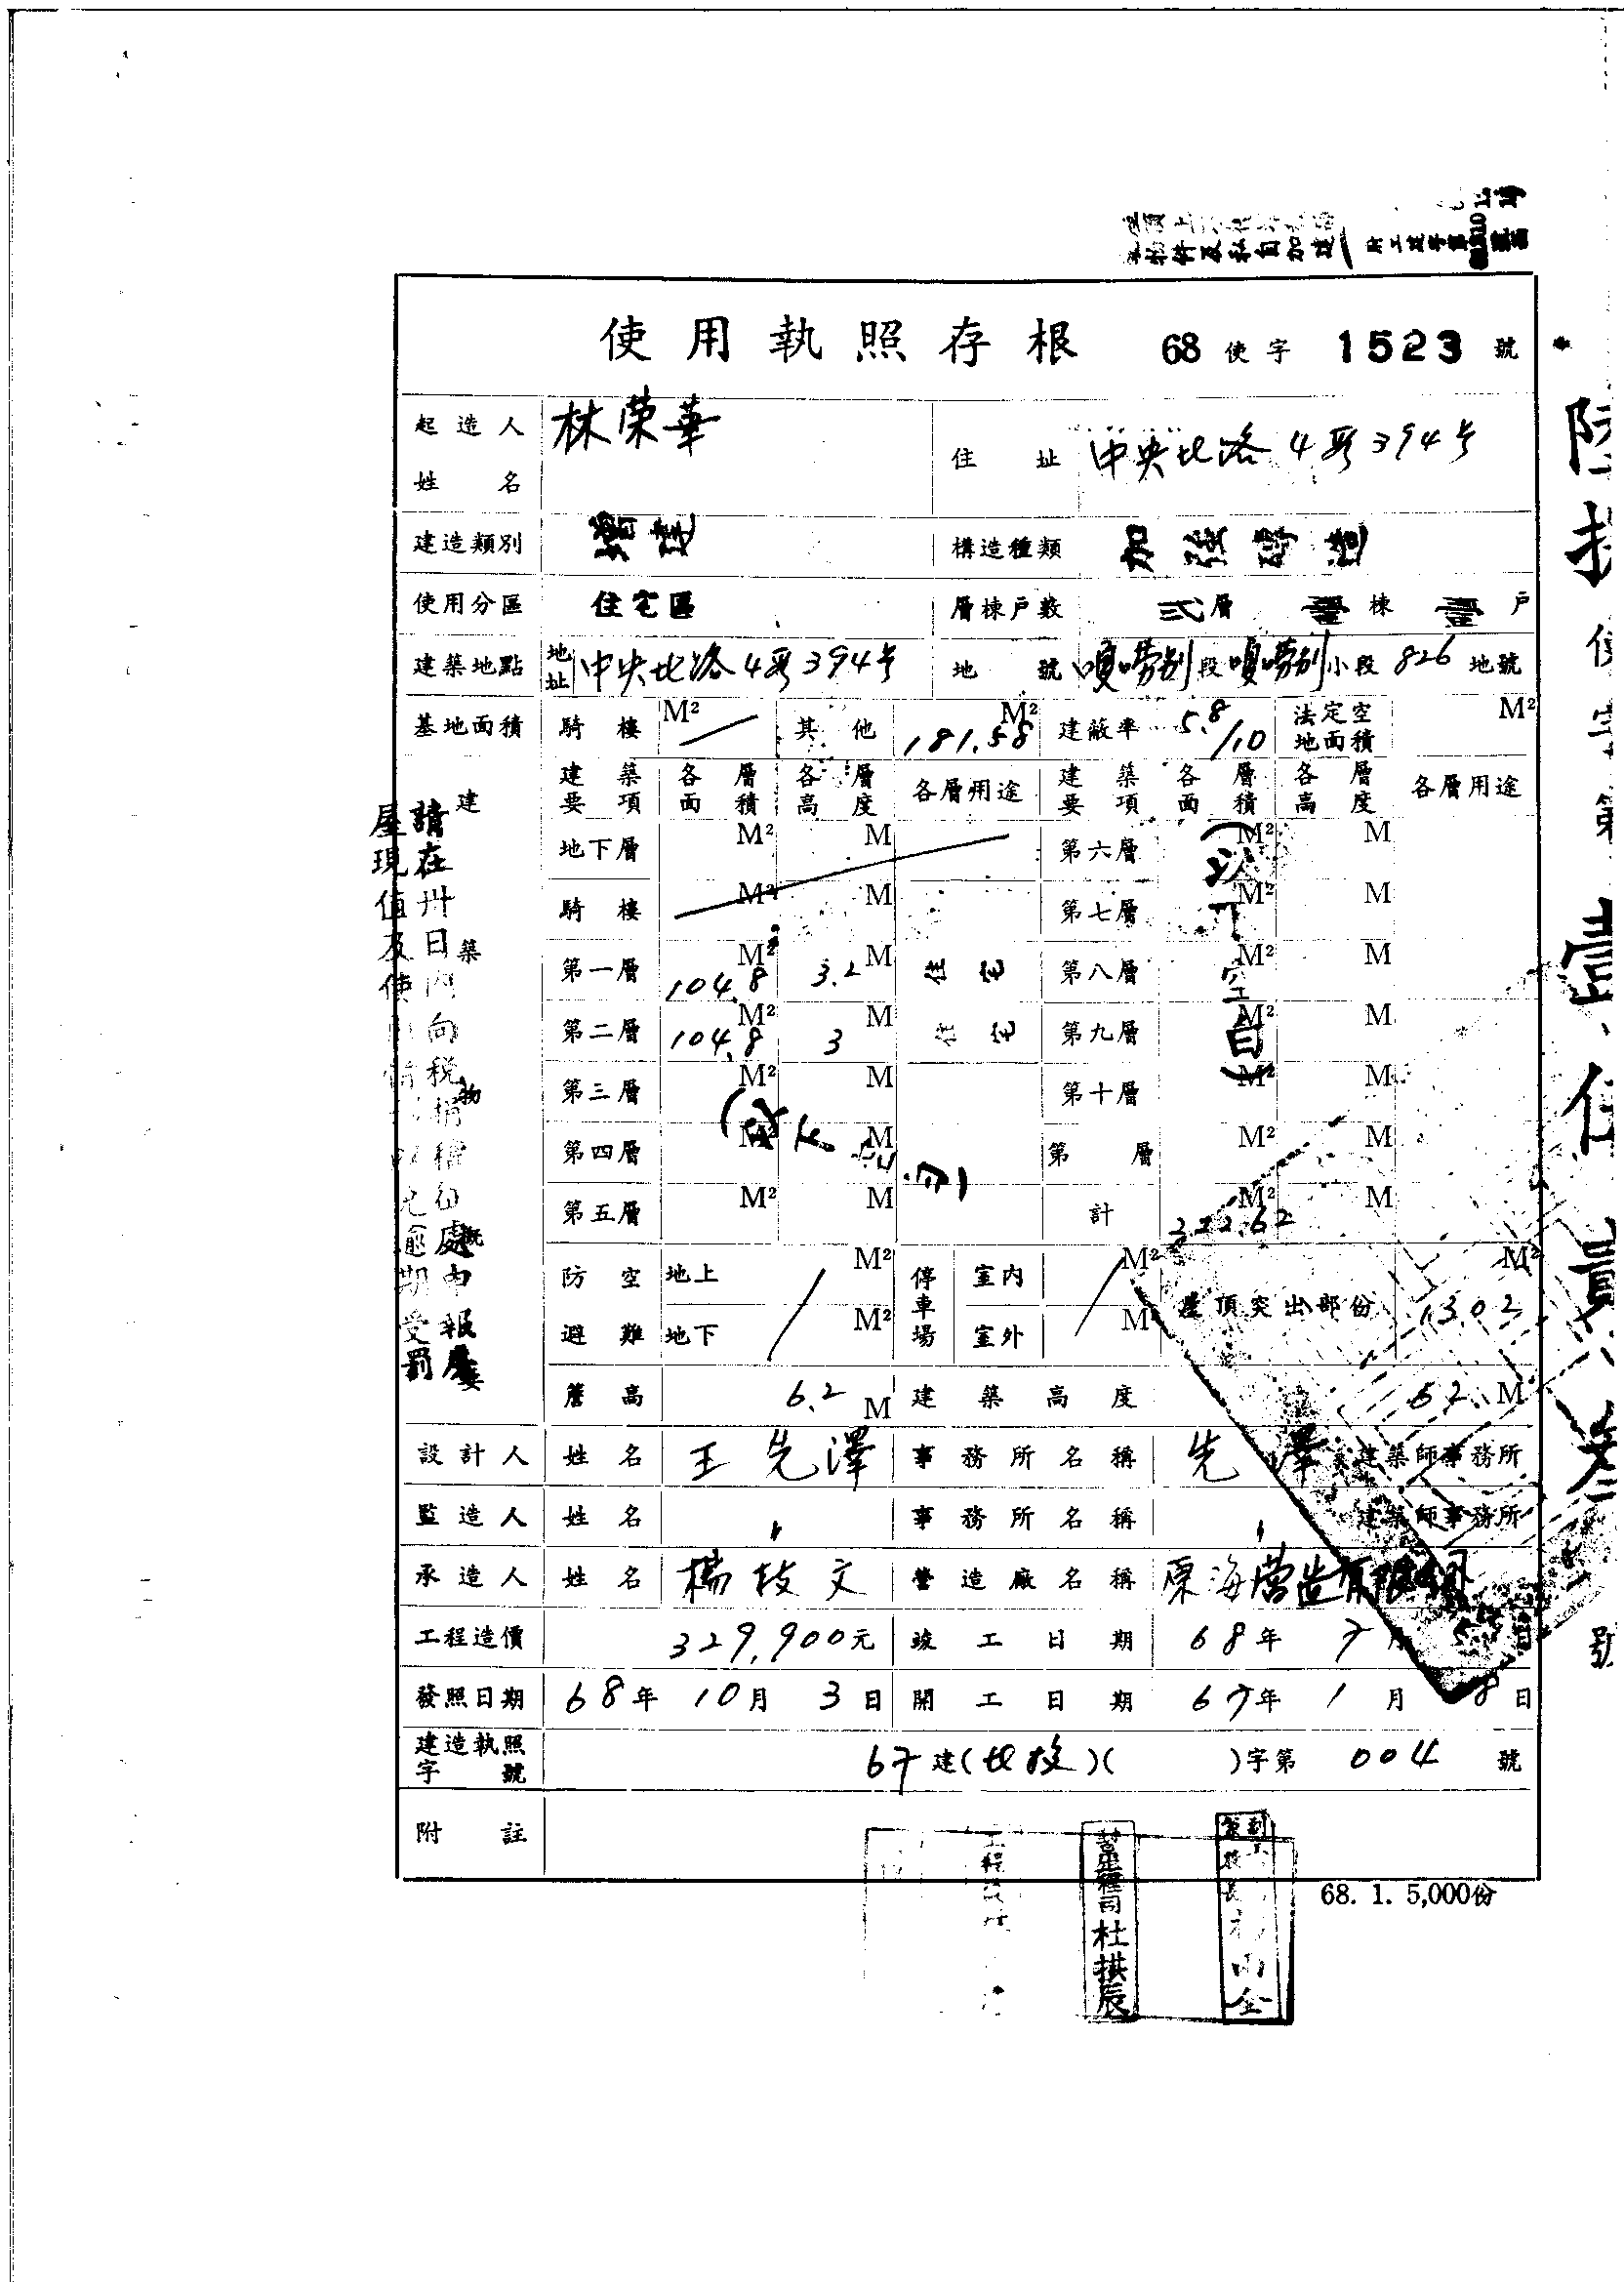 使用執照存根 68 使字 1523 號
起造人姓名 林荣華 住址 中央北路4段394号
建造類別 構造種類 加強磚造
使用分區 住宅區 層棟戶數 弍層 壹棟 壹戶
建築地點 地址 中央北路4段394号 地號 嗄嘮别段嗄嘮别小段 826 地號
基地面積 騎樓 M² 其他 181.58 M² 建蔽率 5.8/10 法定空地面積 M²
建築物概要
建築要項 各層面積 各層高度 各層用途 建築要項 各層面積 各層高度 各層用途
地下層 M² M 第六層 M² M
騎樓 M² M 第七層 M² M
第一層 104.8 M² 3.2 M 住宅 第八層 M² M
第二層 104.8 M² 3 M 住宅 第九層 M² M
第三層 M² M 第十層 M² M
第四層 M² M 第 層 M² M
第五層 M² M 計 222.62 M² M
(以下空白)
防空避難 地上 M² 停車場 室內 M² 屋頂突出部份 13.02 M²
地下 M² 室外 M²
簷高 6.2 M 建築高度 6.2 M
設計人 姓名 王先澤 事務所名稱 先澤 建築師事務所
監造人 姓名 〃 事務所名稱 〃 建築師事務所
承造人 姓名 楊枝文 營造廠名稱
工程造價 329,900元 竣工日期 68年 7月 日
發照日期 68年 10月 3日 開工日期 67年 1月 8日
建造執照字號 67建(北投)( )字第 004 號
附註
68. 1. 5,000份
請在卅日內向稅捐稽征處申報房
屋現值及使用情形以免逾期受罰
杜拱辰